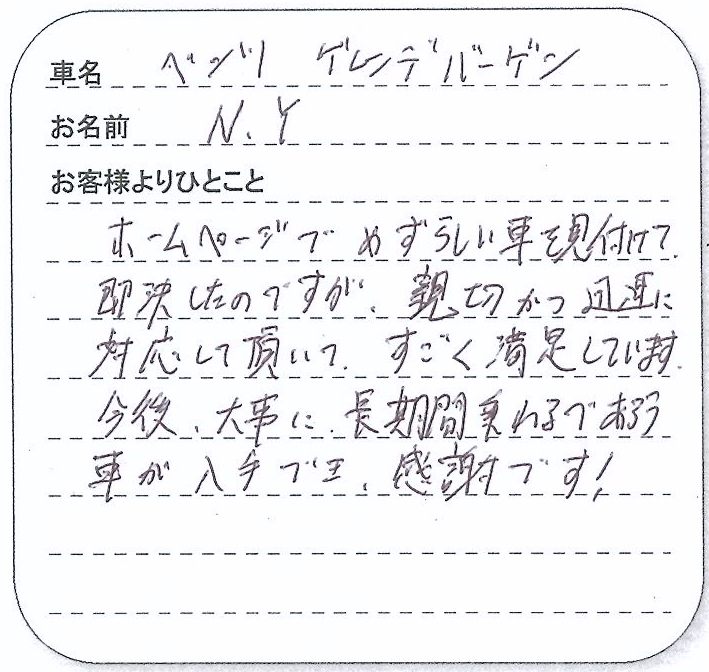 車名 ベンツ ゲレンデバーゲン
お名前 N.Y
お客様よりひとこと
ホームページで めずらしい車を見付けて、
即決したのですが、親切かつ迅速に
対応して頂いて、すごく満足しています。
今後、大事に、長期間乗れるであろう
車が入手でき、感謝です!